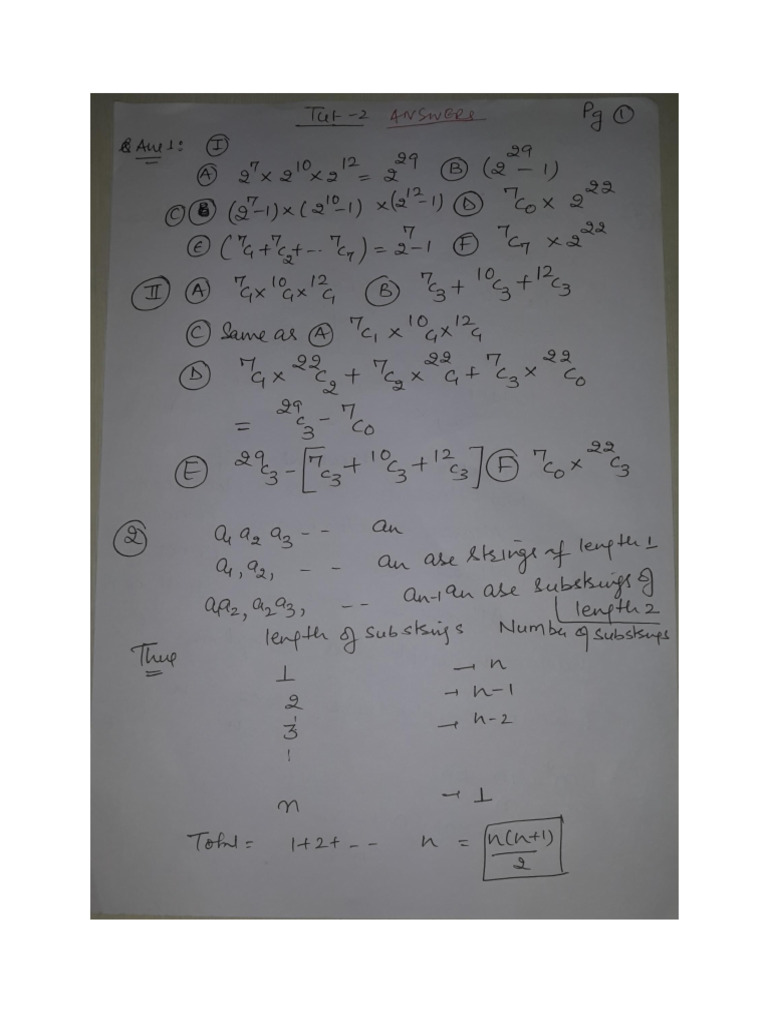 Tut-2 ANSWERS Pg ①
Ans 1: Ⓘ
Ⓐ 2⁷ × 2¹⁰ × 2¹² = 2²⁹ Ⓑ (2²⁹ - 1)
Ⓒ (2⁷-1) × (2¹⁰-1) × (2¹²-1) Ⓓ ⁷C₀ × 2²²
Ⓔ (⁷C₁ + ⁷C₂ + ... ⁷C₇) = 2⁷-1 Ⓕ ⁷C₇ × 2²²
Ⅱ Ⓐ ⁷C₁ × ¹⁰C₁ × ¹²C₁ Ⓑ ⁷C₃ + ¹⁰C₃ + ¹²C₃
Ⓒ Same as Ⓐ ⁷C₁ × ¹⁰C₁ × ¹²C₁
Ⓓ ⁷C₁ × ²²C₂ + ⁷C₂ × ²²C₁ + ⁷C₃ × ²²C₀
= ²⁹C₃ - ⁷C₀
Ⓔ ²⁹C₃ - [⁷C₃ + ¹⁰C₃ + ¹²C₃] Ⓕ ⁷C₀ × ²²C₃
② a₁ a₂ a₃ -- an
a₁, a₂, -- an are strings of length 1
a₁a₂, a₂a₃, -- an-1 an are substrings of
length 2
Thus length of substrings Number of substrings
1 → n
2 → n-1
3 → n-2
n → 1
Total = 1+2+-- n = n(n+1)/2